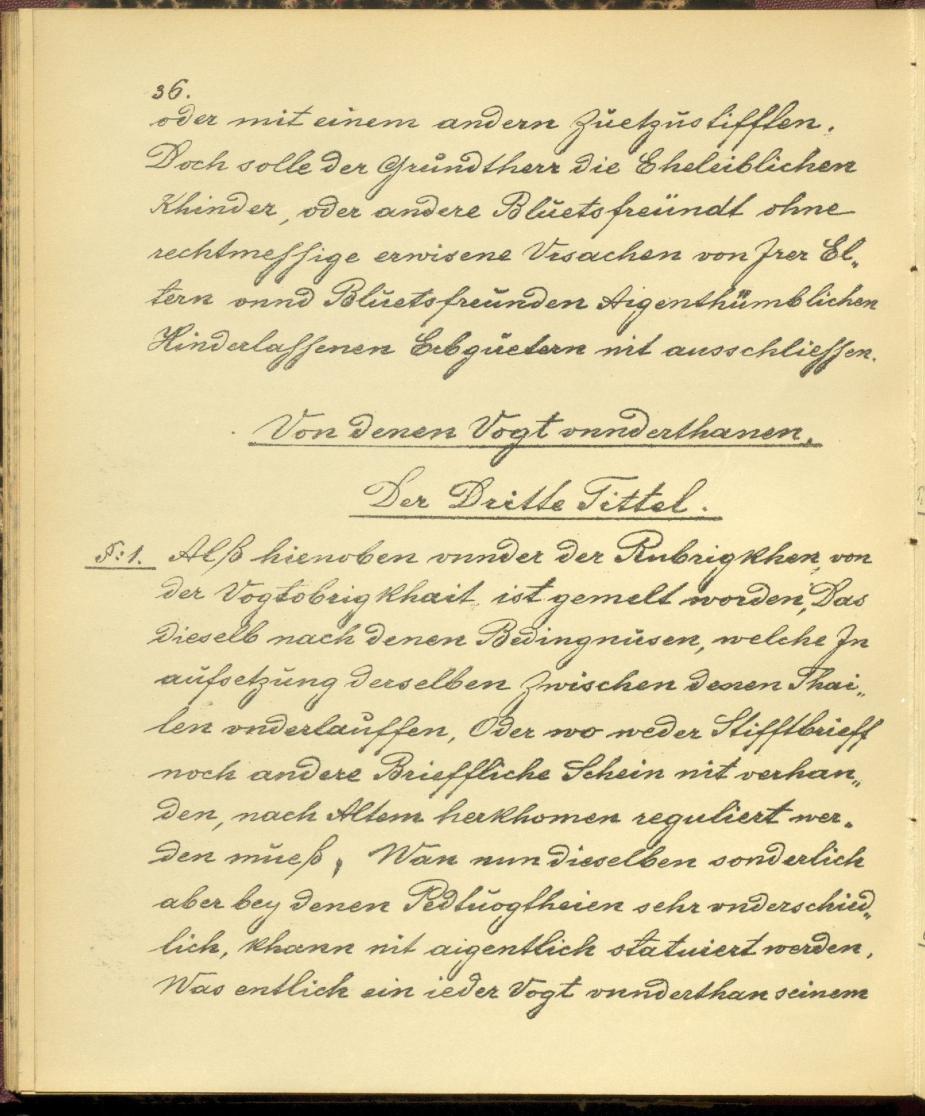 36.
oder mit einem andern Zuetzustifften.
Doch solle der Grŭndtherr die Eheleiblichen
Khinder, oder andere Blŭetsfreündt ohne
rechtmessige erwisene Vrsachen von Jrer El„
tern vnnd Blŭetsfreŭnden Aigenthümblichen
Hinderlassenen Erbgüetern nit ausschliessen.
Von denen Vogt vnnderthanen.
Der Dritte Tittel.
§:1. Alß hienoben vnnder der Rubrigkhen, von
der Vogtobrigkhait, ist gemelt worden, Das
dieselb nach denen Bedingnŭsen, welche Jn
aŭfsetzŭng derselben Zwischen denen Thai„
len vnderlaŭffen, Oder wo weder Stifftbrieff
noch andere Brieffliche Schein nit verhan„
den, nach Altem herkhomen reguliert wer„
den mŭeß, Wan nun dieselben sonderlich
aber bey denen Pedtuogtheien sehr vnderschied„
lich, khann nit aigentlich statuiert werden,
Was entlich ein ieder Vogt vnnderthan seinem